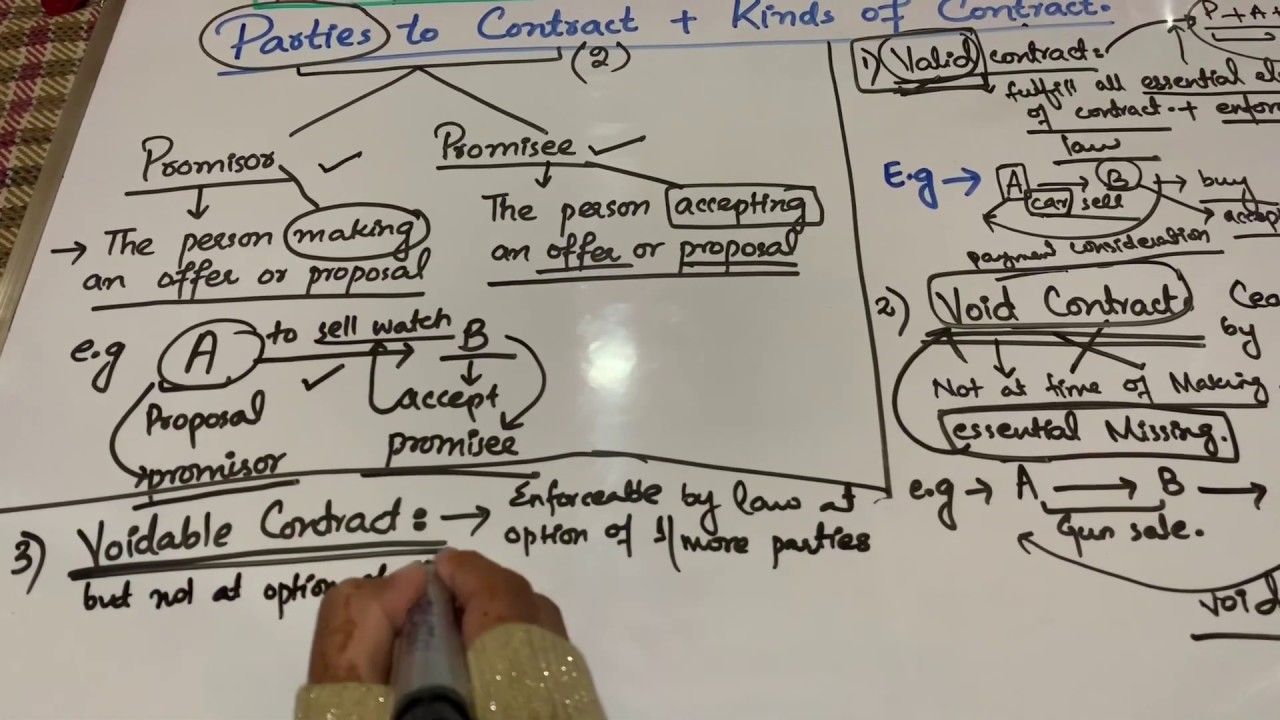 Parties to Contract + Kinds of Contract.
(2)
Promisor
→ The person making
an offer or proposal
Promisee
The person accepting
an offer or proposal
e.g A to sell watch B
Proposal
promisor
accept
promisee
1) Valid contract:
P + A +
fulfill all essential
of contract. +
law
E.g → A → B → buy
car sell
payment consideration
2) Void Contract
by
Not at time of Making
essential Missing.
e.g → A → B →
Gun sale.
void
3) Voidable Contract: → Enforceable by law at
option of 1/more parties
but not at option